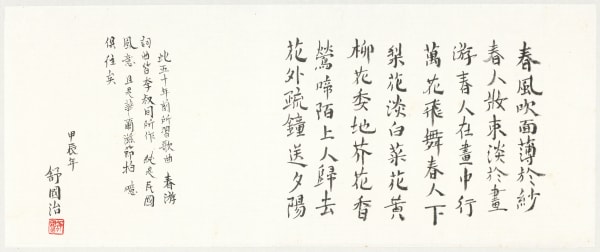 春風吹面薄於紗
春人妝束淡於畫
游春人在畫中行
萬花飛舞春人下
梨花淡白菜花黃
柳花委地芥花香
鶯啼陌上人歸去
花外疏鐘送夕陽
此五十年前所習歌曲 春游
詞曲皆李叔同所作 純是民國
風意 且是華爾滋節拍 噫
俱佳矣
甲辰年
舒國治